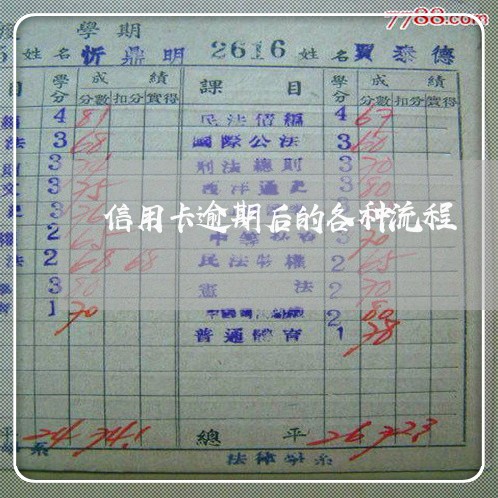 7788.com
學期
姓名 忻鼎明 2616 姓名 賈泰德
目 學分 成績 課目 學分 成績
分數 扣分 實得 分數 扣分 實得
4 81 民法債編 4 67
法 3 68 國際公法 3 60
3 刑法總則 3 70
3 75 西洋通史 3 80
3
信用卡逾期后的各种流程
2 65 3 70
法 2 68 68 民法物權 2 65
3 80 憲法 2 70
1 70 2 80
普通體育 1 78
平 24 74.1 總平 26 72.3
系 法律學系